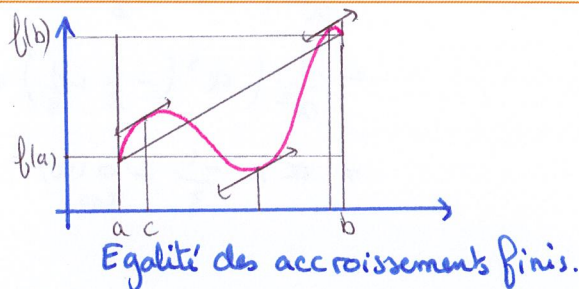 f(b)
f(a)
a c b
Egalité des accroissements finis.